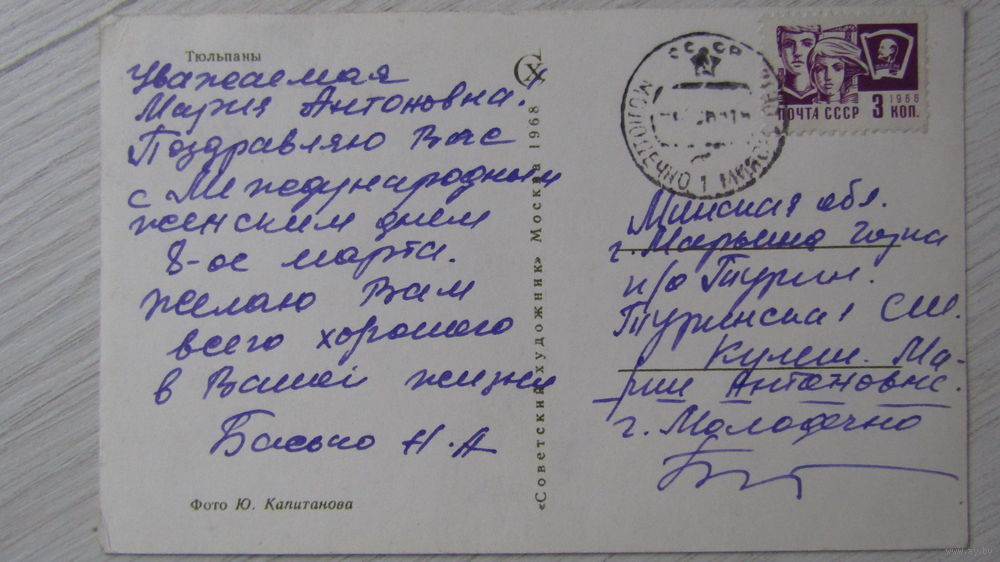 Тюльпаны
Уважаемая
Мария Антоновна.
Поздравляю Вас
с Международным
женским днем
8-ое марта.
Желаю Вам
всего хорошего
в Вашей жизни
Басько Н.А
Фото Ю. Капитанова
«Советский художник» Москва 1968
СССР
МОЛОДЕЧНО 1
1966
ПОЧТА СССР 3 КОП.
Минская обл.
г. Марьина Горка
п/о Турин.
Туринская СШ.
Кулеш. Ма-
рии Антоновне.
г. Молодечно
www.ay.by